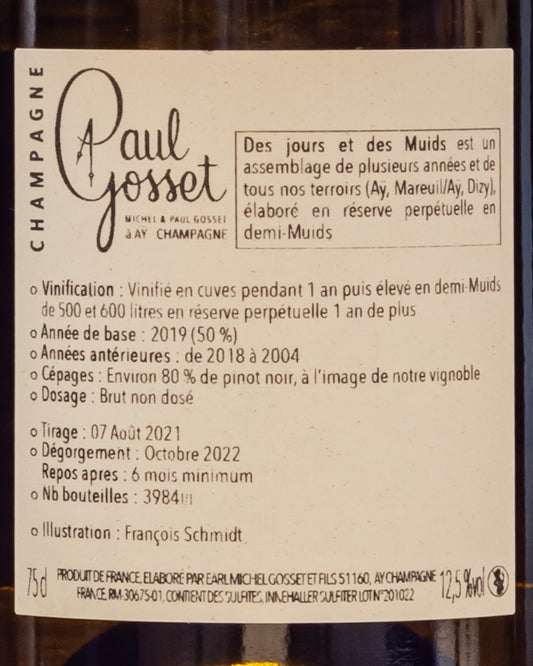 CHAMPAGNE
Paul
Gosset
MICHEL & PAUL GOSSET
à AŸ CHAMPAGNE
Des jours et des Muids est un
assemblage de plusieurs années et de
tous nos terroirs (Aÿ, Mareuil/Aÿ, Dizy),
élaboré en réserve perpétuelle en
demi-Muids
o Vinification : Vinifié en cuves pendant 1 an puis élevé en demi-Muids
de 500 et 600 litres en réserve perpétuelle 1 an de plus
o Année de base : 2019 (50 %)
o Années antérieures : de 2018 à 2004
o Cépages : Environ 80 % de pinot noir, à l'image de notre vignoble
o Dosage : Brut non dosé
o Tirage : 07 Août 2021
o Dégorgement : Octobre 2022
Repos apres : 6 mois minimum
o Nb bouteilles : 3984
o Illustration : François Schmidt
75cl
PRODUIT DE FRANCE, ELABORÉ PAR EARL MICHEL GOSSET ET FILS 51160, AY CHAMPAGNE
FRANCE, RM-30675-01, CONTIENT DES SULFITES, INNEHALLER SULFITER LOT N°201022
12,5 %vol